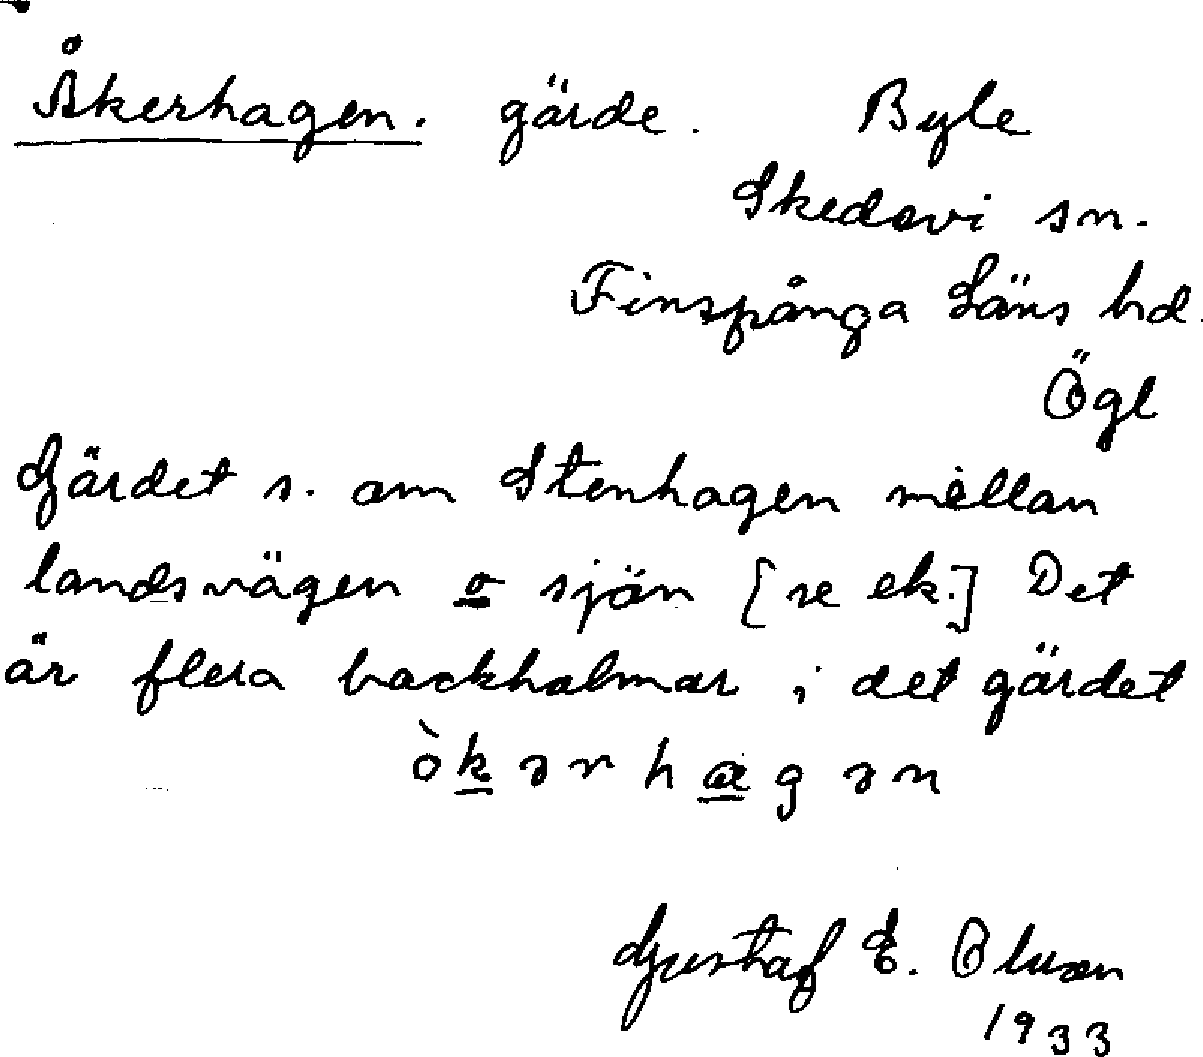 Åkerhagen. gärde. Byle
Skedevi sn.
Finspånga Läns hd.
Ögl
Gärdet s. om Stenhagen mellan
landsvägen o sjön [se ek.] Det
är flera backholmar i det gärdet
òkərhagən
Gustaf E. Olsson
1933